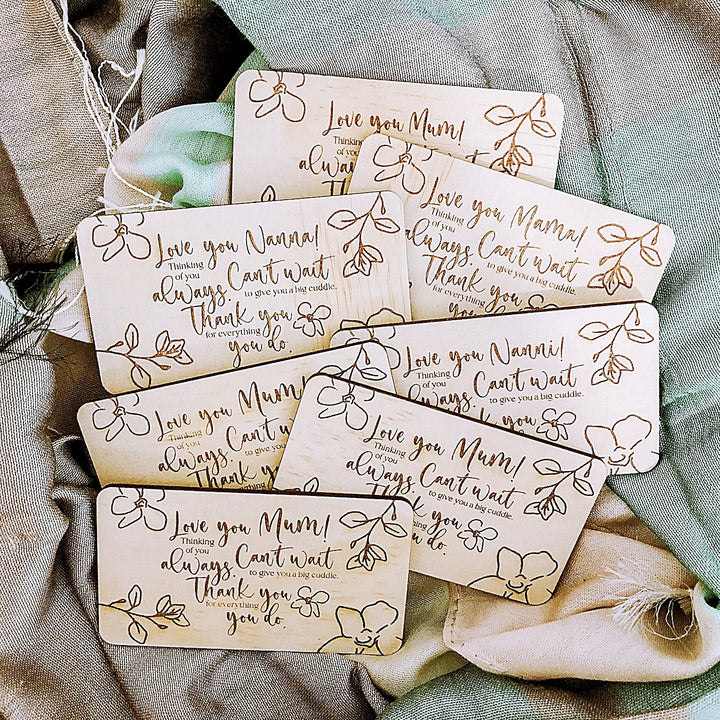 Love you Mum!
Thinking
of you
always
Love you Mama!
Thinking
of you
always. Can't wait
to give you a big cuddle.
Thank you
for everything
Love you Nanna!
Thinking
of you
always. Can't wait
to give you a big cuddle.
Thank you
for everything
you do.
Love you Nanni!
Thinking
of you
always. Can't wait
to give you a big cuddle.
you
Love you Mum!
Thinking
of you
always. Can't w
to give
Thank y
for everything
Love you Mum!
Thinking
of you
always. Can't wait
to give you a big cuddle.
Thank you
thing
do.
Love you Mum!
Thinking
of you
always. Can't wait
to give you a big cuddle.
Thank you
for everything
you do.